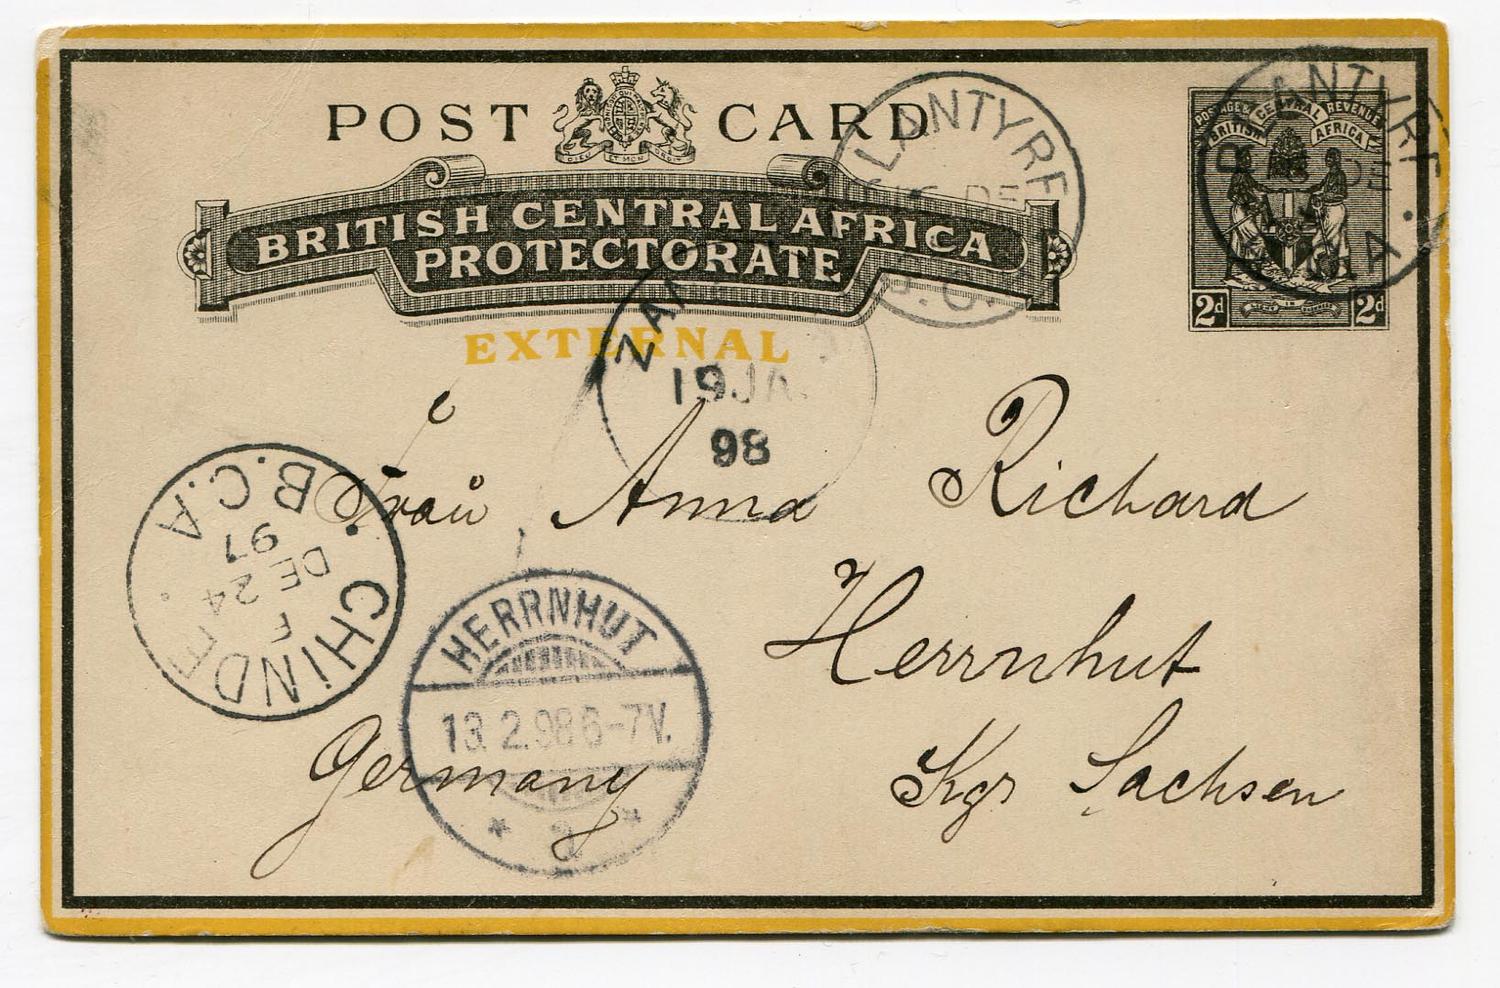 POST CARD
DIEU ET MON DROIT
BRITISH CENTRAL AFRICA
PROTECTORATE
EXTERNAL
POSTAGE & REVENUE
BRITISH CENTRAL AFRICA
2d 2d
BLANTYRE
DE
A
LANTYRE
DE
B.C.
ZAN
19 JA
98
Frau Anna Richard
Herrnhut
Kgr Sachsen
Germany
CHINDE
F
DE 24
97
B.C.A
HERRNHUT
13.2.98 6-7V.
* *